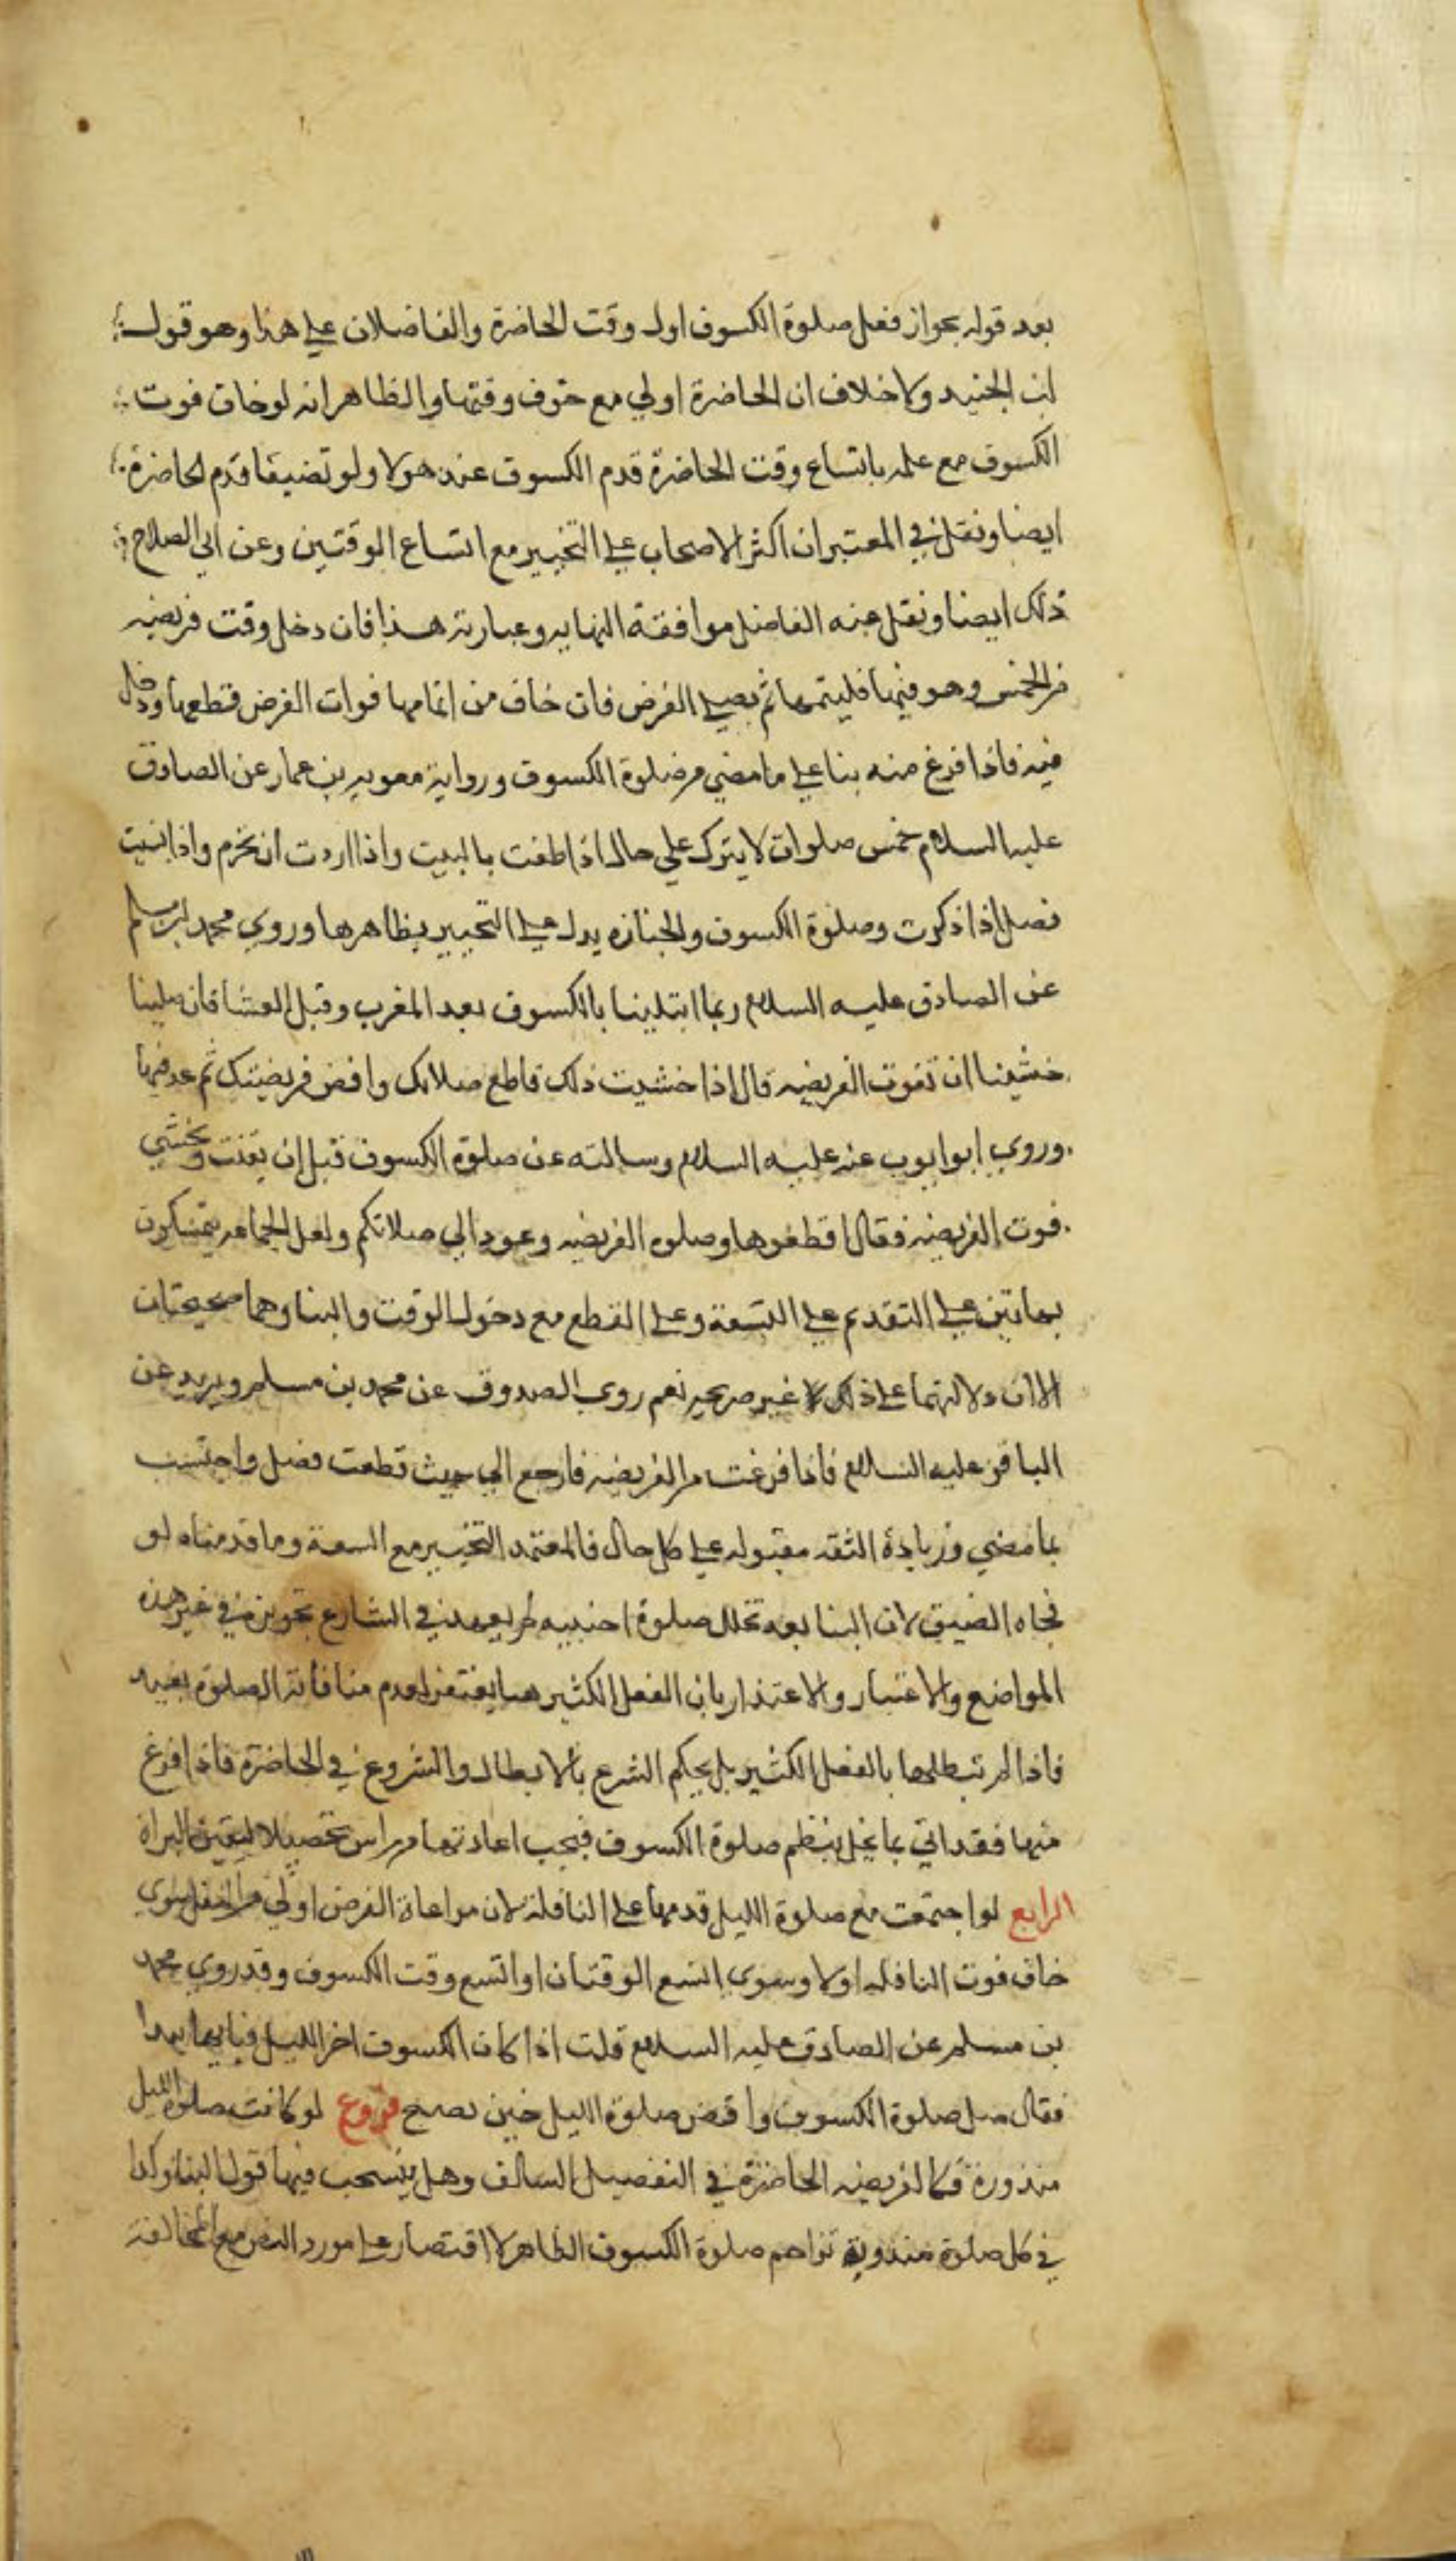 بعد قوله بجواز فعل صلوة الكسوف اول وقت الحاضرة والفاضلان على هذا وهو قول
ابن الجنيد ولا خلاف ان الحاضرة اولي مع خوف وقتها والظاهر انه لو خاف فوت
الكسوف مع علمه باتساع وقت الحاضرة قدم الكسوف عند هولا ولو تضيقا قدم الحاضرة
ايضا ونقل في المعتبر ان اكثر الاصحاب على التخيير مع اتساع الوقتين وعن ابي الصلاح
ذلك ايضا ونقل عنه الفاضل موافقة النهايه وعبارته هذا فان دخل وقت فريضه
من الخمس وهو فيها فليتمها ثم يصلي الفرض فان خاف من اتمامها فوات الفرض قطعها ودخل
فيه فاذا فرغ منه بنا على ما مضي من صلوة الكسوف ورواية معويه بن عمار عن الصادق
عليه السلام خمس صلوات لا يترك على حال اذا طفت بالبيت واذا اردت ان تحرم واذا نسيت
فصل اذا ذكرت وصلوة الكسوف والجنازه يدل على التخيير بظاهرها وروي محمد بن مسلم
عن الصادق عليه السلام ربما ابتلينا بالكسوف بعد المغرب وقبل العشا فان صلينا
خشينا ان تفوت الفريضه قال اذا خشيت ذلك فاطع صلاتك واقض فريضتك ثم عد فيها
وروي ابو ايوب عنه عليه السلام وسالته عن صلوة الكسوف قبل ان يفنت ويخشي
فوت الفريضه فقال اقطعوها وصلوه الفريضه وعودا لي صلاتكم ولعل الجماعه يتمسكون
بهاتين على التقديم على السعة وعلى القطع مع دخول الوقت والبنا وهما صحيحتان
الا ان دلالتهما على ذلك غير صريحه نعم روي الصدوق عن محمد بن مسلم وبريد عن
الباقر عليه السلام فاذا فرغت من الفريضه فارجع الي حيث قطعت فصل واحتسب
بما مضي وزيادة الثقه مقبوله على كل حال فالمعتمد التخيير مع السعة وما قدمناه لو
فجاه الضيق لان البنا بعد تخلل صلوة اجنبيه لم يعهد في الشارع تجويزه في غير هذه
المواضع والاعتبار والاعتذار بان الفعل الكثير هنا يغتفر لعدم منافاته الصلوة بعيد
فاذا لم تبطلها بالفعل الكثير بل بحكم الشرع بالابطال والشروع في الحاضرة فاذا فرغ
منها فقد اتي بما يخل بنظم صلوة الكسوف فيجب اعادتها من راس تحصيلا ليقين البراة
الرابع لو اجتمعت مع صلوة الليل قدمها على النافلة لان مراعاة الفرض اولي من النفل سوي
خاف فوت النافله اولا وسوي اتسع الوقتان او اتسع وقت الكسوف وقد روي محمد
بن مسلم عن الصادق عليه السلام قلت اذا كان الكسوف اخر الليل فبايها يبدا
فقال صل صلوة الكسوف واقض صلوة الليل حين تصبح فروع لو كانت صلوة الليل
منذورة فكالفريضه الحاضرة في التفصيل السالف وهل ينسحب فيها قول البنا وكذا
في كل صلوة مندوبة تزاحم صلوة الكسوف الظاهر لا اقتصار على مورد النص مع المخالفة